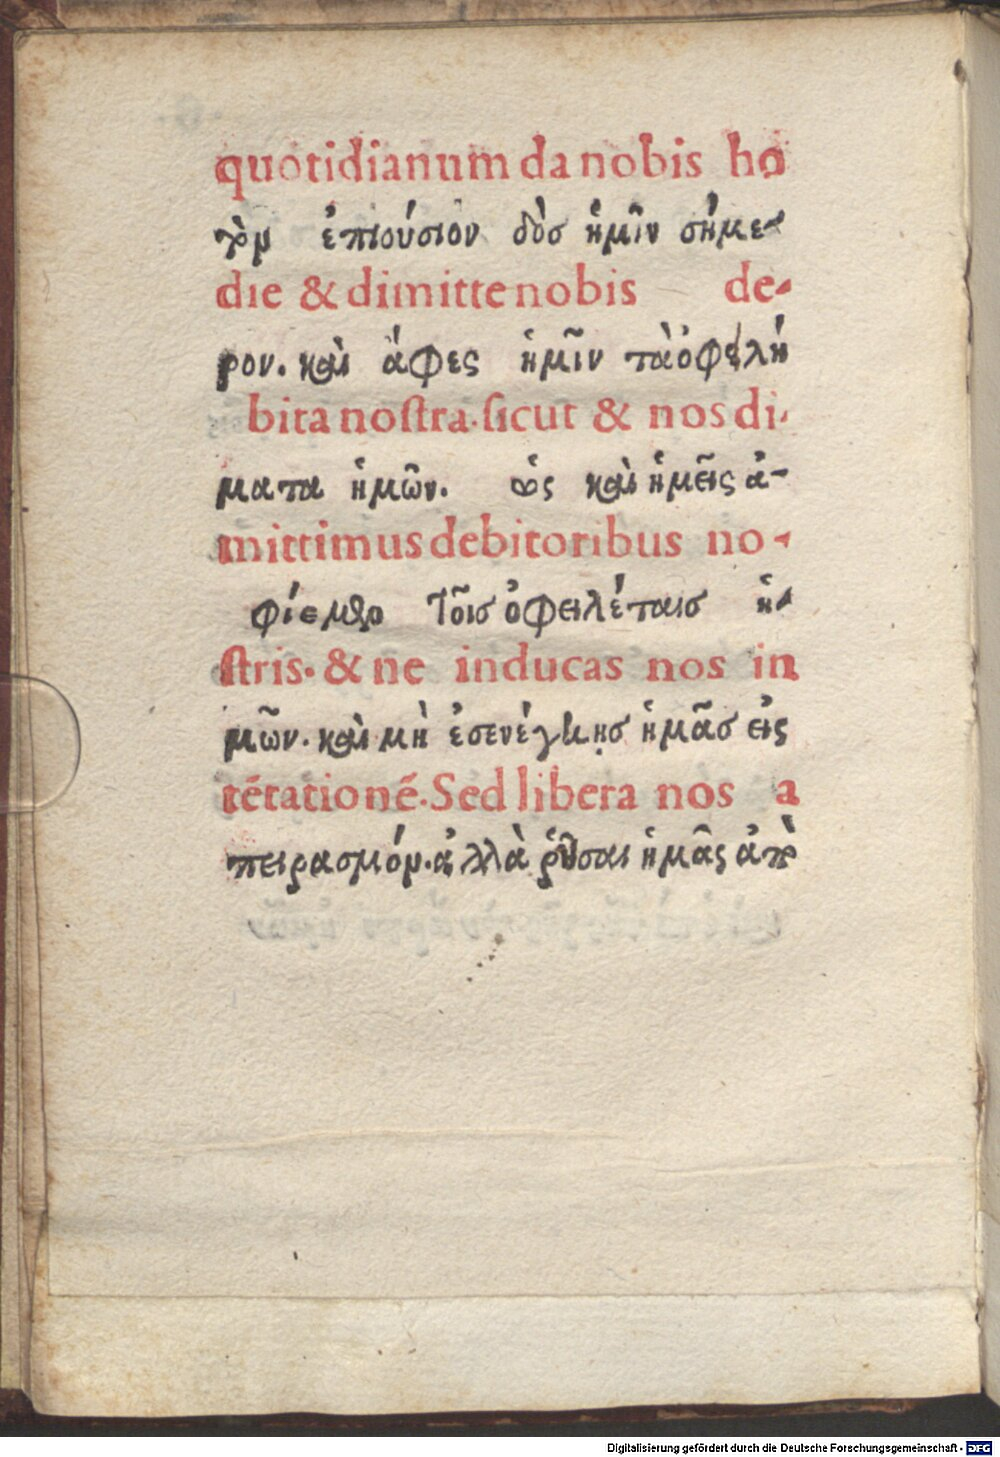 quotidianum da nobis ho
τὸν ἐπιούσιον δὸσ ἡμῖν σήμε-
die & dimitte nobis de-
ρον. καὶ ἄφες ἡμῖν τὰ ὀφελή
bita nostra. sicut & nos di-
ματα ἡμῶν. ὡς καὶ ἡμεῖς ἀ-
mittimus debitoribus no-
φίεμεν τοῖσ ὀφειλέταισ ἡ-
stris. & ne inducas nos in
μῶν. καὶ μὴ ἐσενέγκησ ἡμᾶσ εἰς
tētationē. Sed libera nos a
πειρασμόν. ἀλλὰ ῥῦσαι ἡμᾶς ἀπὸ
Digitalisierung gefördert durch die Deutsche Forschungsgemeinschaft - DFG